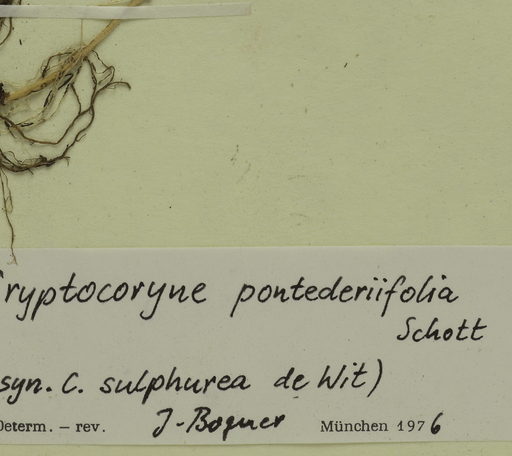 Cryptocoryne pontederiifolia
Schott
syn. C. sulphurea de Wit)
Determ. – rev. J. Bogner München 1976